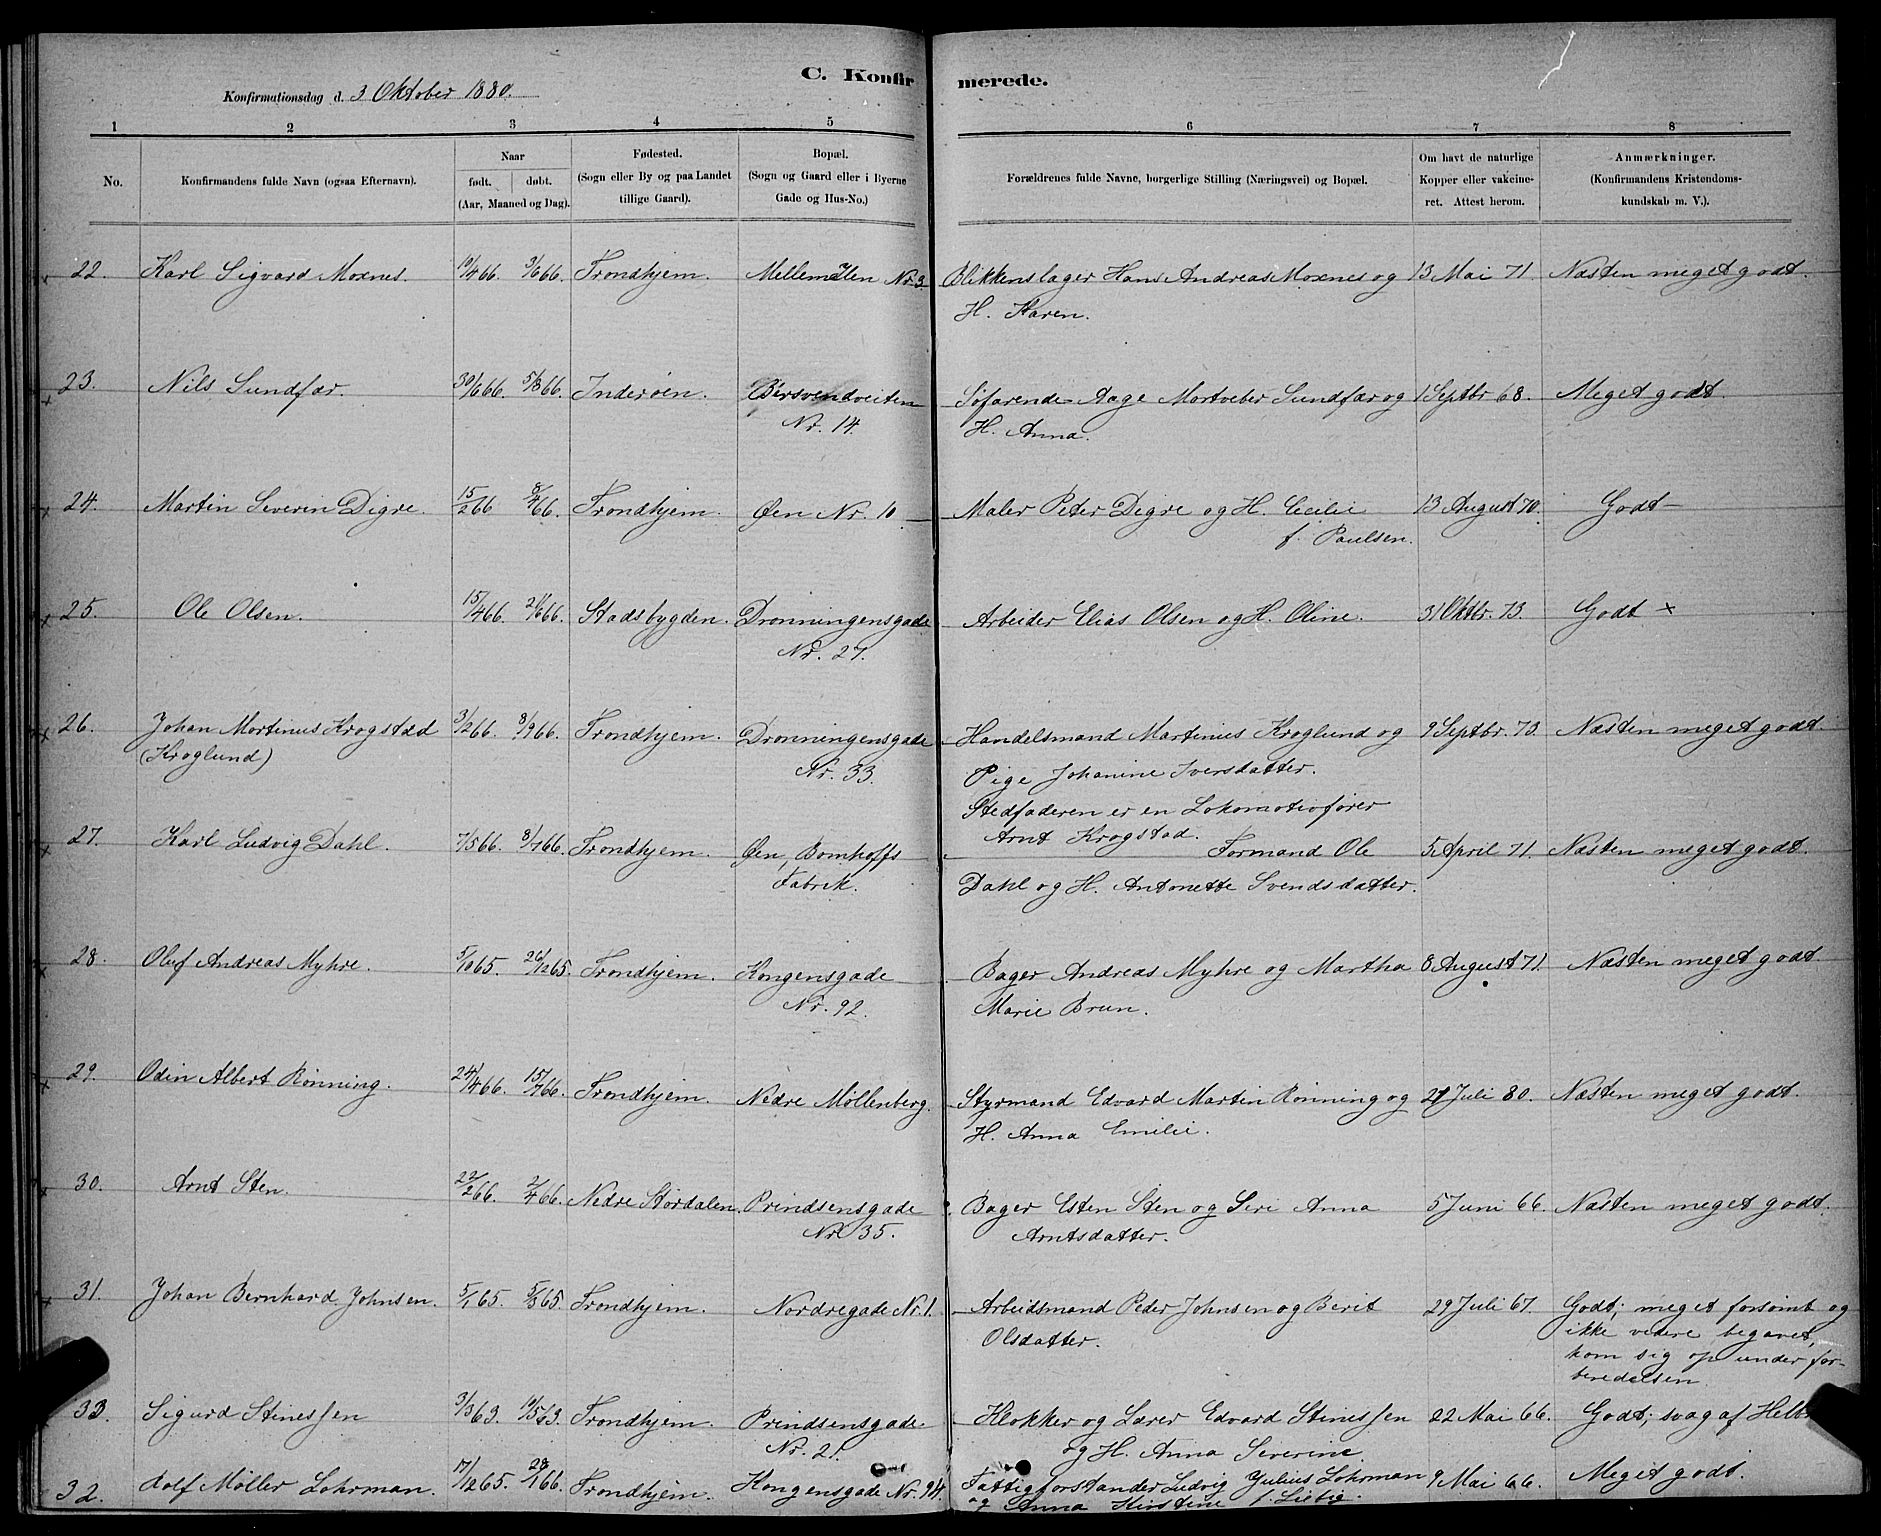 C. Konfirmerede.
Konfirmationsdag d. 3 Oktober 1880.
1 2 3 4 5 6 7 8
No. Konfirmandens fulde Navn (ogsaa Efternavn). Naar født. døbt. (Aar, Maaned og Dag). Fødested. (Sogn eller By og paa Landet tillige Gaard). Bopæl. (Sogn og Gaard eller i Byerne Gade og Hus-No.) Forældrenes fulde Navne, borgerlige Stilling (Næringsvei) og Bopæl. Om havt de naturlige Kopper eller vakcineret. Attest herom. Anmærkninger. (Konfirmandens Kristendomskundskab m. V.).
22. Karl Sigvard Moxnes. 19/4 66. 3/6 66. Trondhjem. Mellem Ilen Nr. 3. Blikkenslager Hans Andreas Moxnes og 13 Mai 71. Næsten meget godt.
H. Karen.
23. Nils Sundfær. 30/6 66. 5/8 66. Inderøen. Bersvendveiten Søfarende Aage Mortveber Sundfær og 1 Septbr 68. Meget godt.
Nr. 14. H. Anna.
24. Martin Severin Digre. 15/2 66 8/4 66. Trondhjem. Øen Nr. 10. Maler Peter Digre og H. Cecilie 13 August 70. Godt
f. Paulsen.
25. Ole Olsen. 15/4 66. 21/6 66. Stadsbygden. Dronningensgade Arbeider Elias Olsen og H. Oline. 31 Oktbr. 73. Godt x
Nr. 27.
26. Johan Martinus Krogstad 3/2 66. 8/9 66. Trondhjem. Dronningensgade Handelsmand Martinius Kroglund og 9 Septbr. 73. Næsten meget godt.
(Kroglund) Nr. 33. Pige Johanine Iversdatter.
Stedfaderen er en Lokomotivfører
Arnt Krogstad.
27. Karl Ludvig Dahl. 7/5 66. 8/7 66. Trondhjem. Øen, Bomhoffs Formand Ole 5 April 71. Næsten meget godt.
Fabrik. Dahl og H. Antonette Svendsdatter.
28. Oluf Andreas Myhre. 5/10 65. 26/12 65. Trondhjem. Kongensgade Bager Andreas Myhre og Martha 8 August 71. Næsten meget godt.
Nr. 92. Marie Brun.
29. Odin Albert Rønning. 24/4 66. 15/7 66. Trondhjem. Nedre Møllenberg. Styrmand Edvard Martin Rønning og 21 Juli 80. Næsten meget godt.
H. Anna Emilie.
30. Arnt Sten. 22/2 66. 2/4 66. Nedre Størdalen. Prindsensgade Bager Esten Sten og Seri Anna 5 Juni 66. Næsten meget godt.
Nr. 35. Arntsdatter.
31. Johan Bernhard Johnsen. 5/1 65. 5/3 65. Trondhjem. Nordregade Nr. 1. Arbeidsmand Peder Johnsen og Berit 29 Juli 67. Godt; meget forsømt og
Olsdatter. ikke videre begavet,
kom sig op under for-
beredelsen.
33. Sigurd Stinessen 3/3 63. 14/5 63. Trondhjem. Prindsensgade Klokker og Lærer Edvard Stinessen 22 Mai 66. Godt; svag af
Nr. 21. og H. Anna Severine
32. Adolf Møller Lohrman. 17/12 65. 28/1 66. Trondhjem. Kongensgade Nr. 94. Fattigforstander Ludvig Julius Lohrman 9 Mai 66. Meget godt.
og Anna Kirstine f. Liebig.